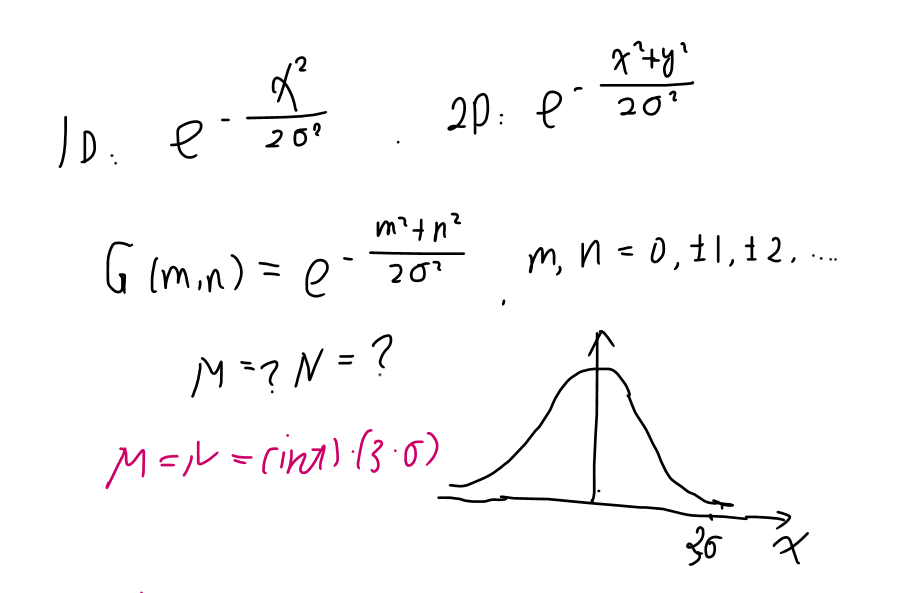 1D: e^{-\frac{x^2}{2σ^2}} . 2D: e^{-\frac{x^2+y^2}{2σ^2}}
G(m,n) = e^{-\frac{m^2+n^2}{2σ^2}} , m, n = 0, ±1, ±2, ....
M=? N=?
M=N=(int)·(3·σ)
3σ x